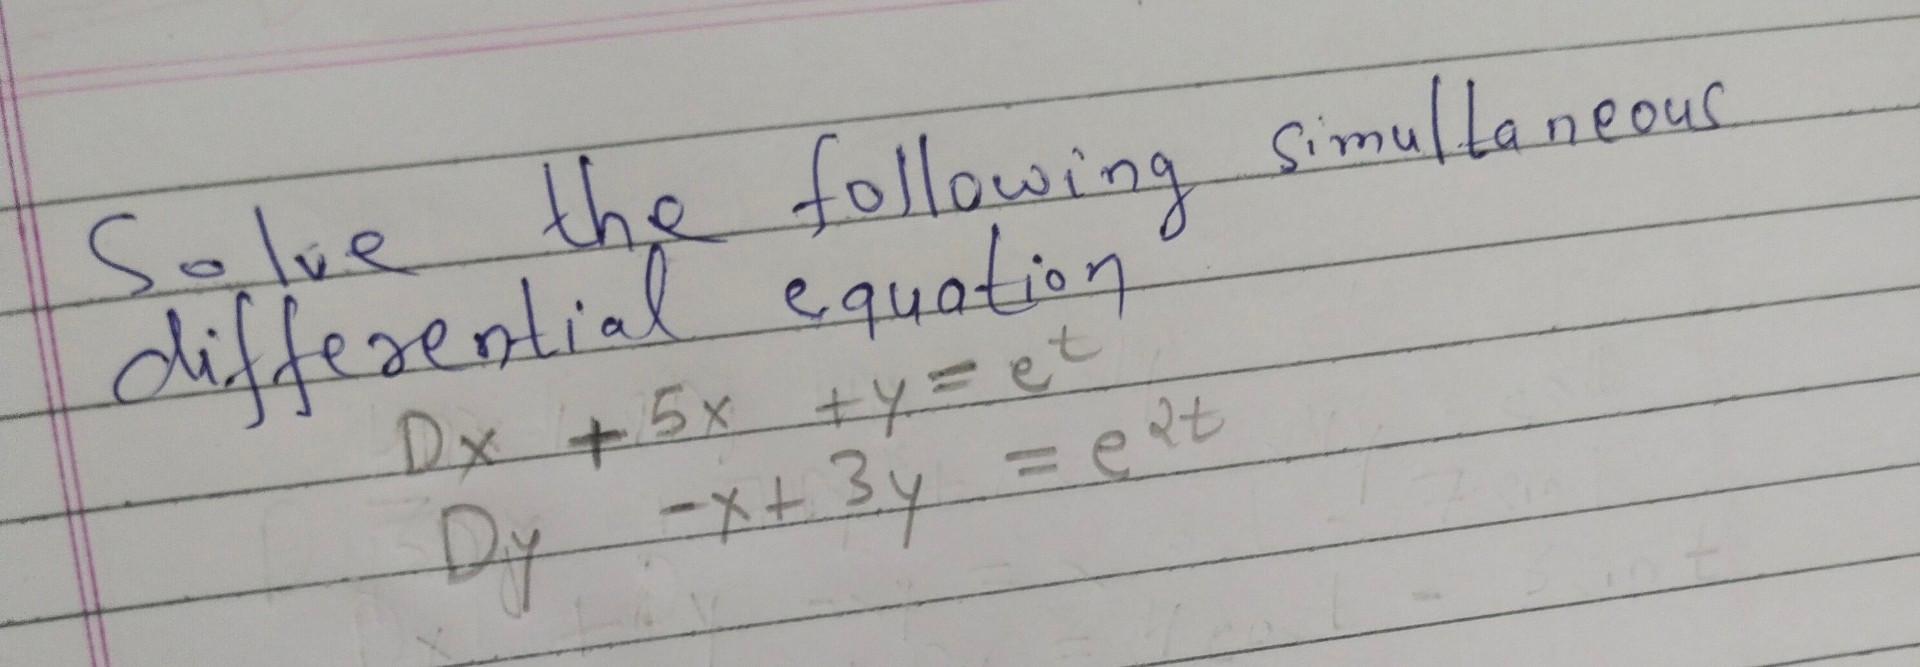 Solve the following simultaneous
differential equation
Dx + 5x + y = e^t
Dy - x + 3y = e^2t